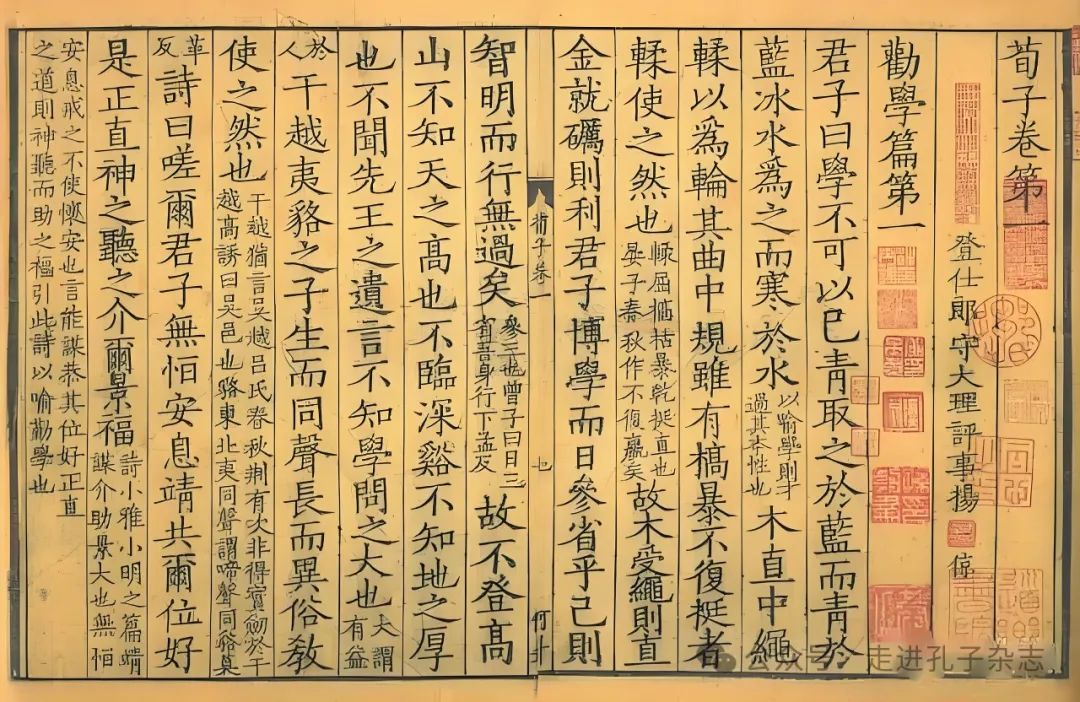 荀子卷第一
登仕郎守大理評事揚 倞
勸學篇第一
君子曰學不可以已青取之於藍而青於
藍冰水爲之而寒於水以喻學則才過其本性也木直中繩
輮以爲輪其曲中規雖有槁暴不復挺者
輮使之然也輮屈槁枯暴乾挺直也晏子春秋作不復贏矣故木受繩則直
金就礪則利君子博學而日參省乎己則
荀子卷一
智明而行無過矣參三也曾子曰日三省吾身行下孟反故不登高
山不知天之高也不臨深谿不知地之厚
也不聞先王之遺言不知學問之大也大謂有益
於人干越夷貉之子生而同聲長而異俗敎
使之然也干越猶言吳越呂氏春秋荆有次非得寳劒於干越高誘曰吳邑也貉東北夷同聲謂啼聲同貉莫
革反詩曰嗟爾君子無恒安息靖共爾位好
是正直神之聽之介爾景福詩小雅小明之篇靖謀介助景大也無恒
安息戒之不使懷安也言能謀恭其位好正直
之道則神聽而助之福引此詩以喻勸學也
公众号 · 走进孔子杂志